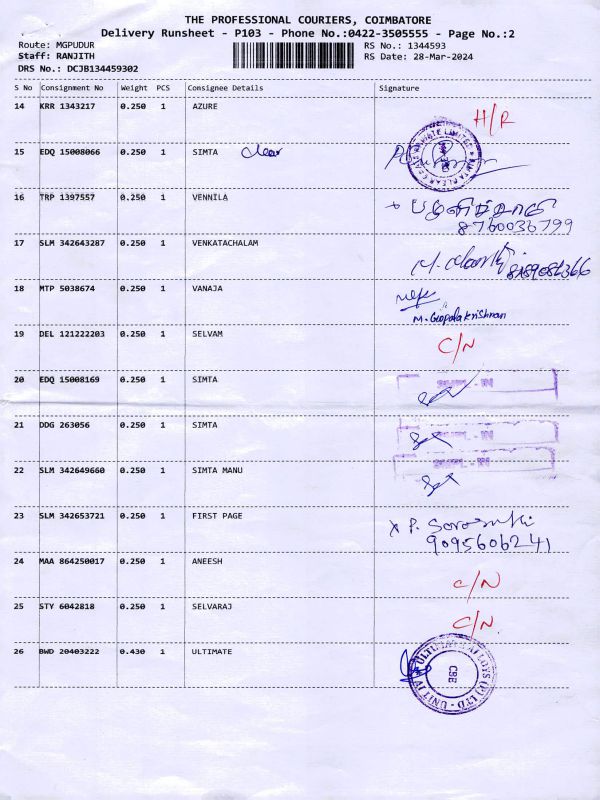 THE PROFESSIONAL COURIERS, COIMBATORE
Delivery Runsheet - P103 - Phone No.:0422-3505555 - Page No.:2
Route: MGPUDUR RS No.: 1344593
Staff: RANJITH RS Date: 28-Mar-2024
DRS No.: DCJB134459302
S No Consignment No Weight PCS Consignee Details Signature
14 KRR 1343217 0.250 1 AZURE H/R
15 EDQ 15008066 0.250 1 SIMTA clear
16 TRP 1397557 0.250 1 VENNILA
8760036799
17 SLM 342643287 0.250 1 VENKATACHALAM
18 MTP 5038674 0.250 1 VANAJA
M. Gopala Krishnan
19 DEL 121222203 0.250 1 SELVAM C/N
20 EDQ 15008169 0.250 1 SIMTA
21 DDG 263056 0.250 1 SIMTA
22 SLM 342649660 0.250 1 SIMTA MANU
23 SLM 342653721 0.250 1 FIRST PAGE
9095606241
24 MAA 864250017 0.250 1 ANEESH C/N
25 STY 6042818 0.250 1 SELVARAJ C/N
26 BWD 20403222 0.430 1 ULTIMATE
CBE